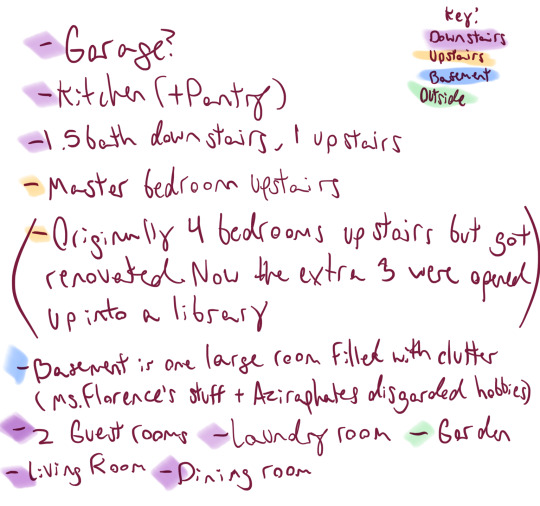 Key:
Downstairs
Upstairs
Basement
Outside
- Garage?
- Kitchen (+Pantry)
- 1.5 bath downstairs, 1 upstairs
- Master bedroom upstairs
(- Originally 4 bedrooms upstairs but got
renovated. Now the extra 3 were opened
up into a library)
- Basement is one large room filled with clutter
(Ms. Florence's stuff + Aziraphales disgarded hobbies)
- 2 Guest rooms - Laundry room - Garden
- Living Room - Dining room